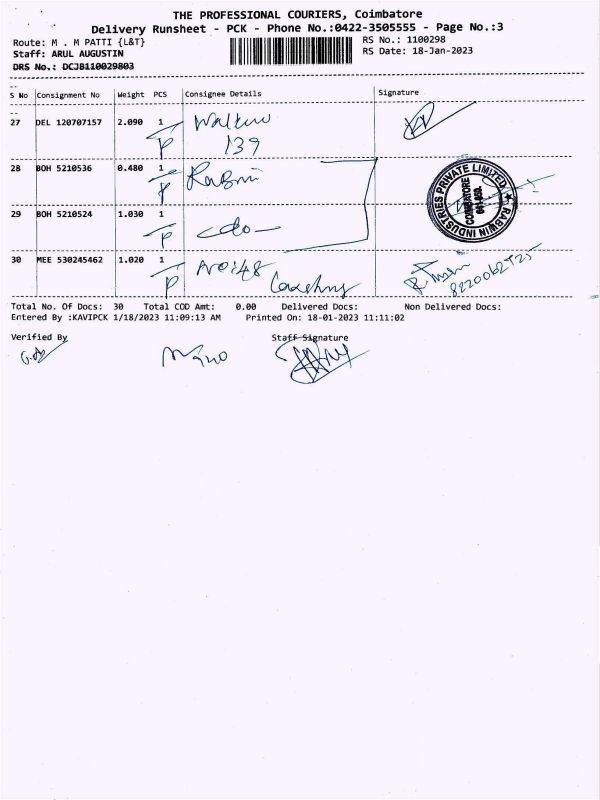 THE PROFESSIONAL COURIERS, Coimbatore
Delivery Runsheet - PCK - Phone No.:0422-3505555 - Page No.:3
Route: M . M PATTI {L&T}
RS No.: 1100298
Staff: ARUL AUGUSTIN
RS Date: 18-Jan-2023
DRS No.: DCJB110029803
S No Consignment No Weight PCS Consignee Details Signature
27 DEL 120707157 2.090 1
139
28 BOH 5210536 0.480 1
RABWIN INDUSTRIES PRIVATE LIMITED
COIMBATORE
29 BOH 5210524 1.030 1
30 MEE 530245462 1.020 1
Total No. Of Docs: 30 Total COD Amt: 0.00 Delivered Docs: Non Delivered Docs:
Entered By :KAVIPCK 1/18/2023 11:09:13 AM Printed On: 18-01-2023 11:11:02
Verified By Staff Signature